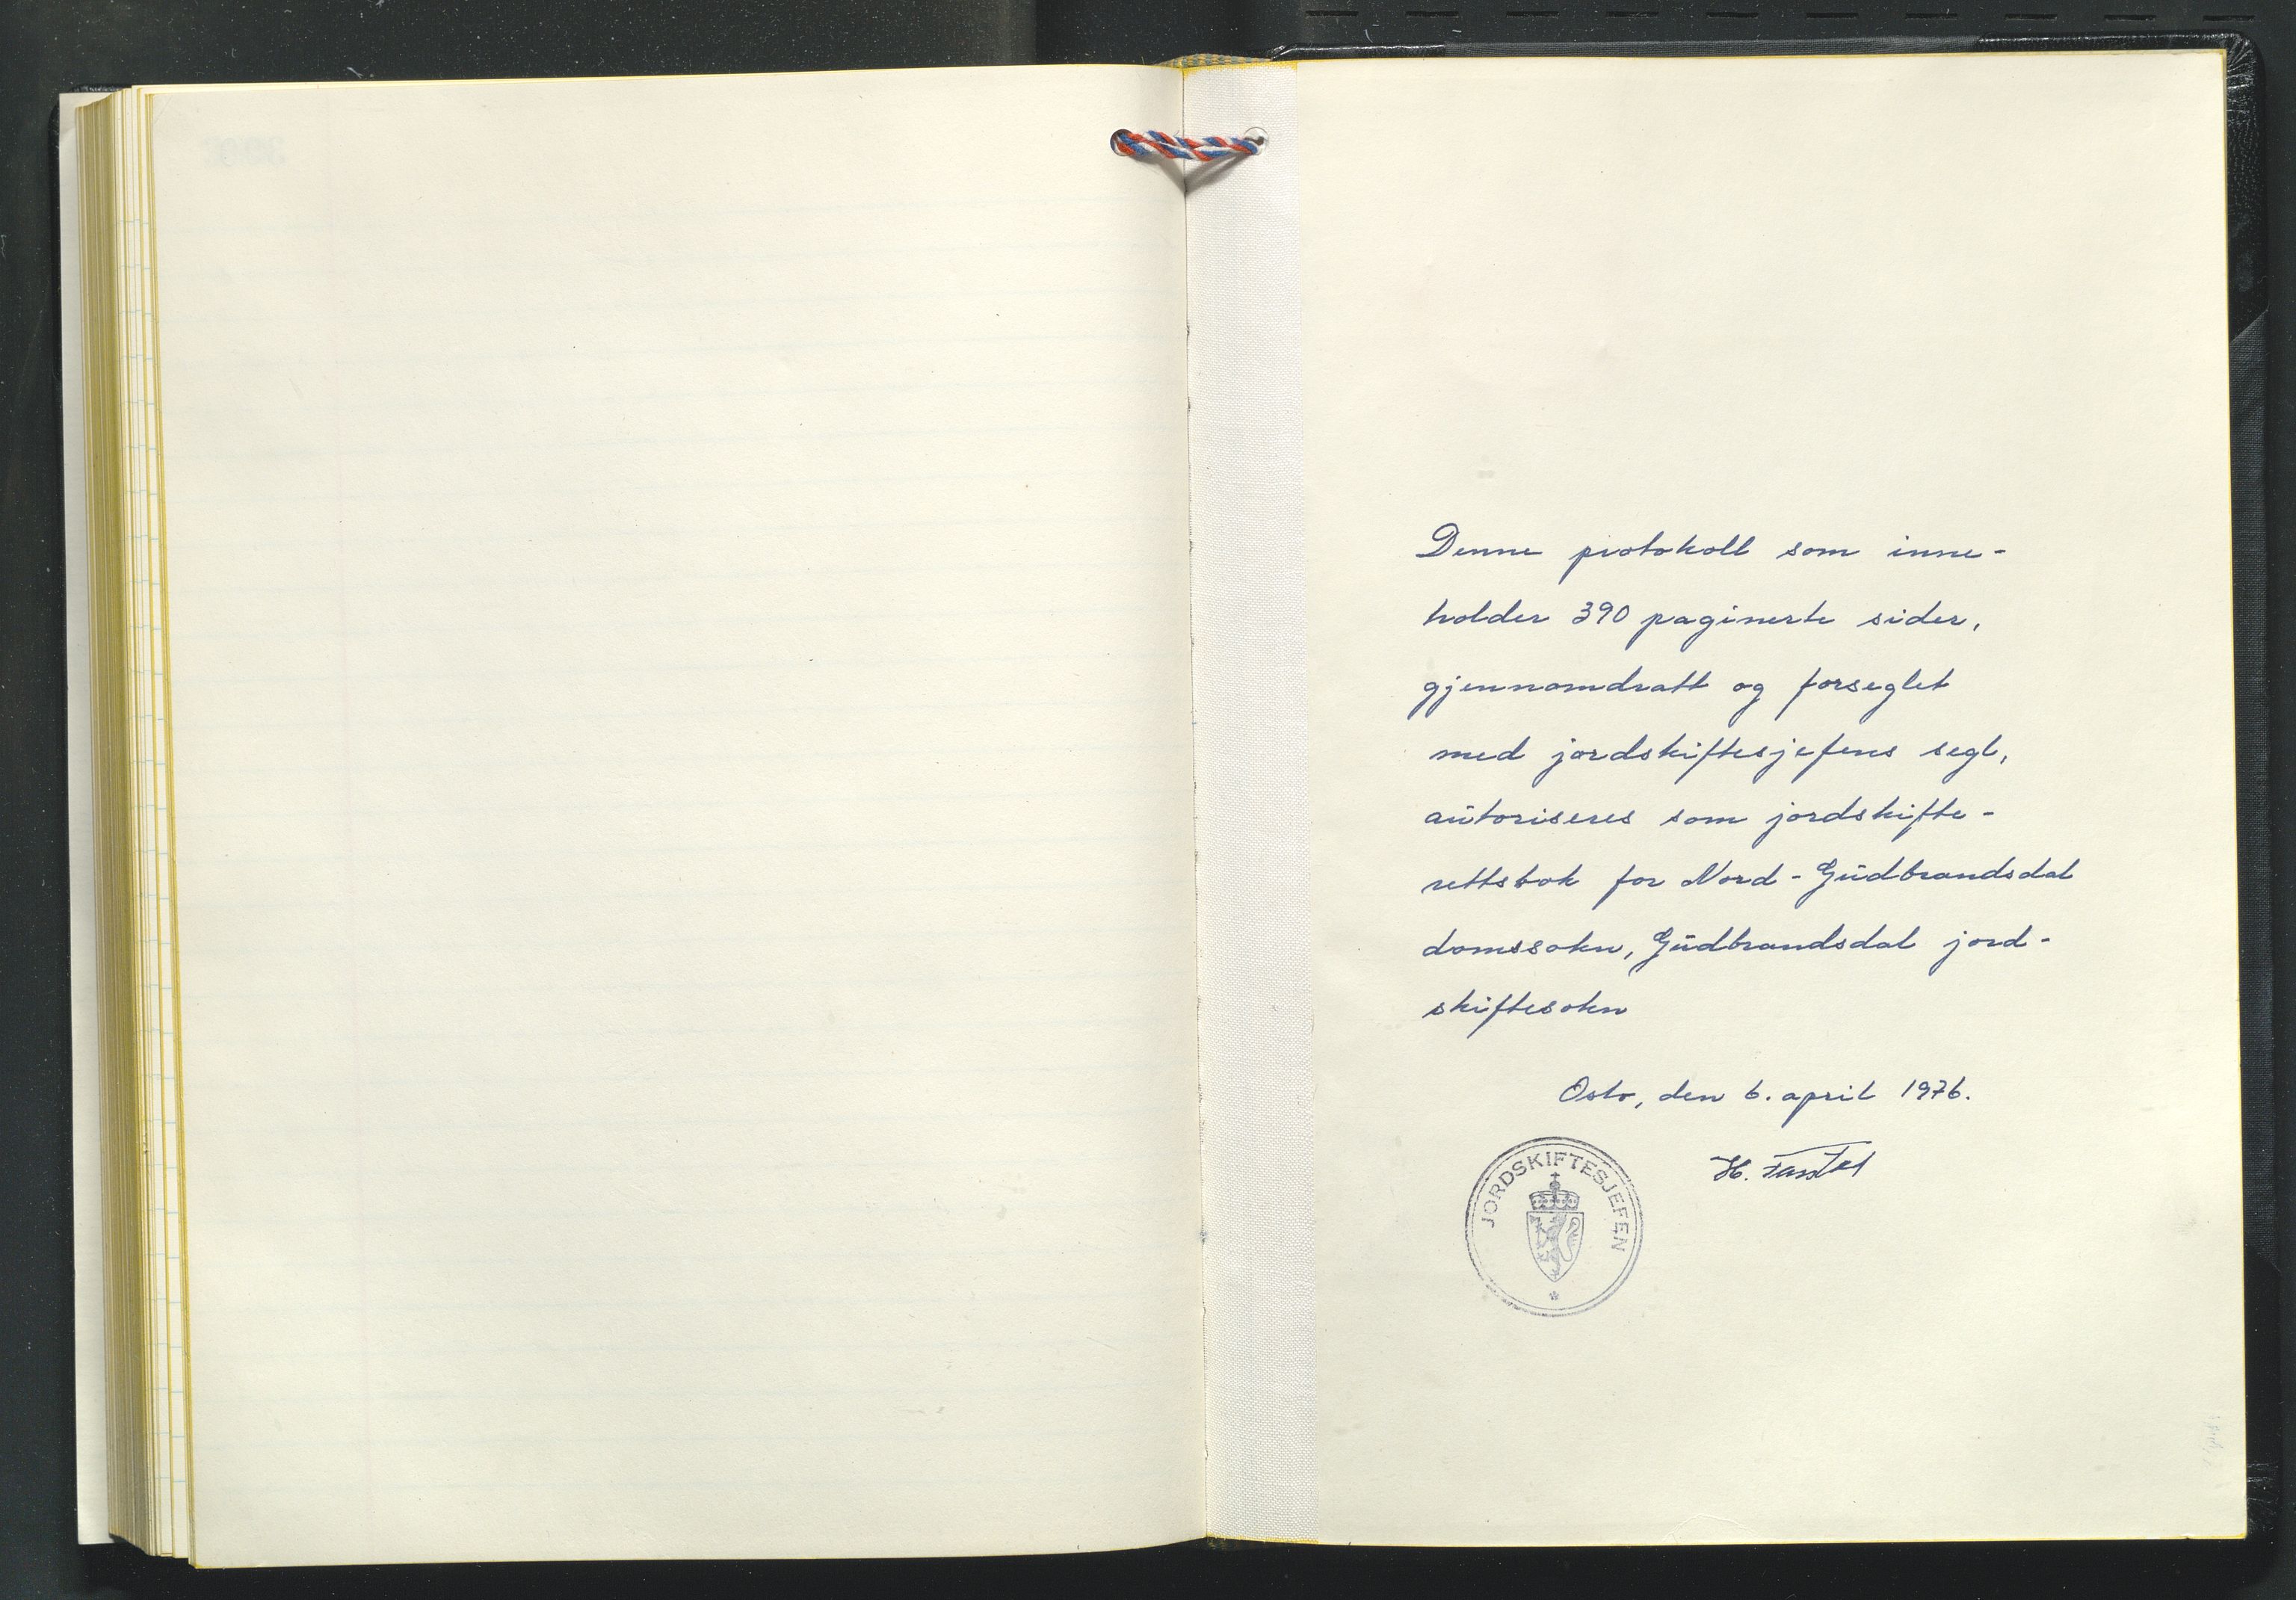 Denne protokoll som inne-
holder 390 paginerte sider,
gjennomdratt og forseglet
med jordskiftesjefens segl,
autoriseres som jordskifte-
rettsbok for Nord-Gudbrandsdal
domssokn, Gudbrandsdal jord-
skiftesokn
Oslo, den 6. april 1976.
H.
JORDSKIFTESJEFEN